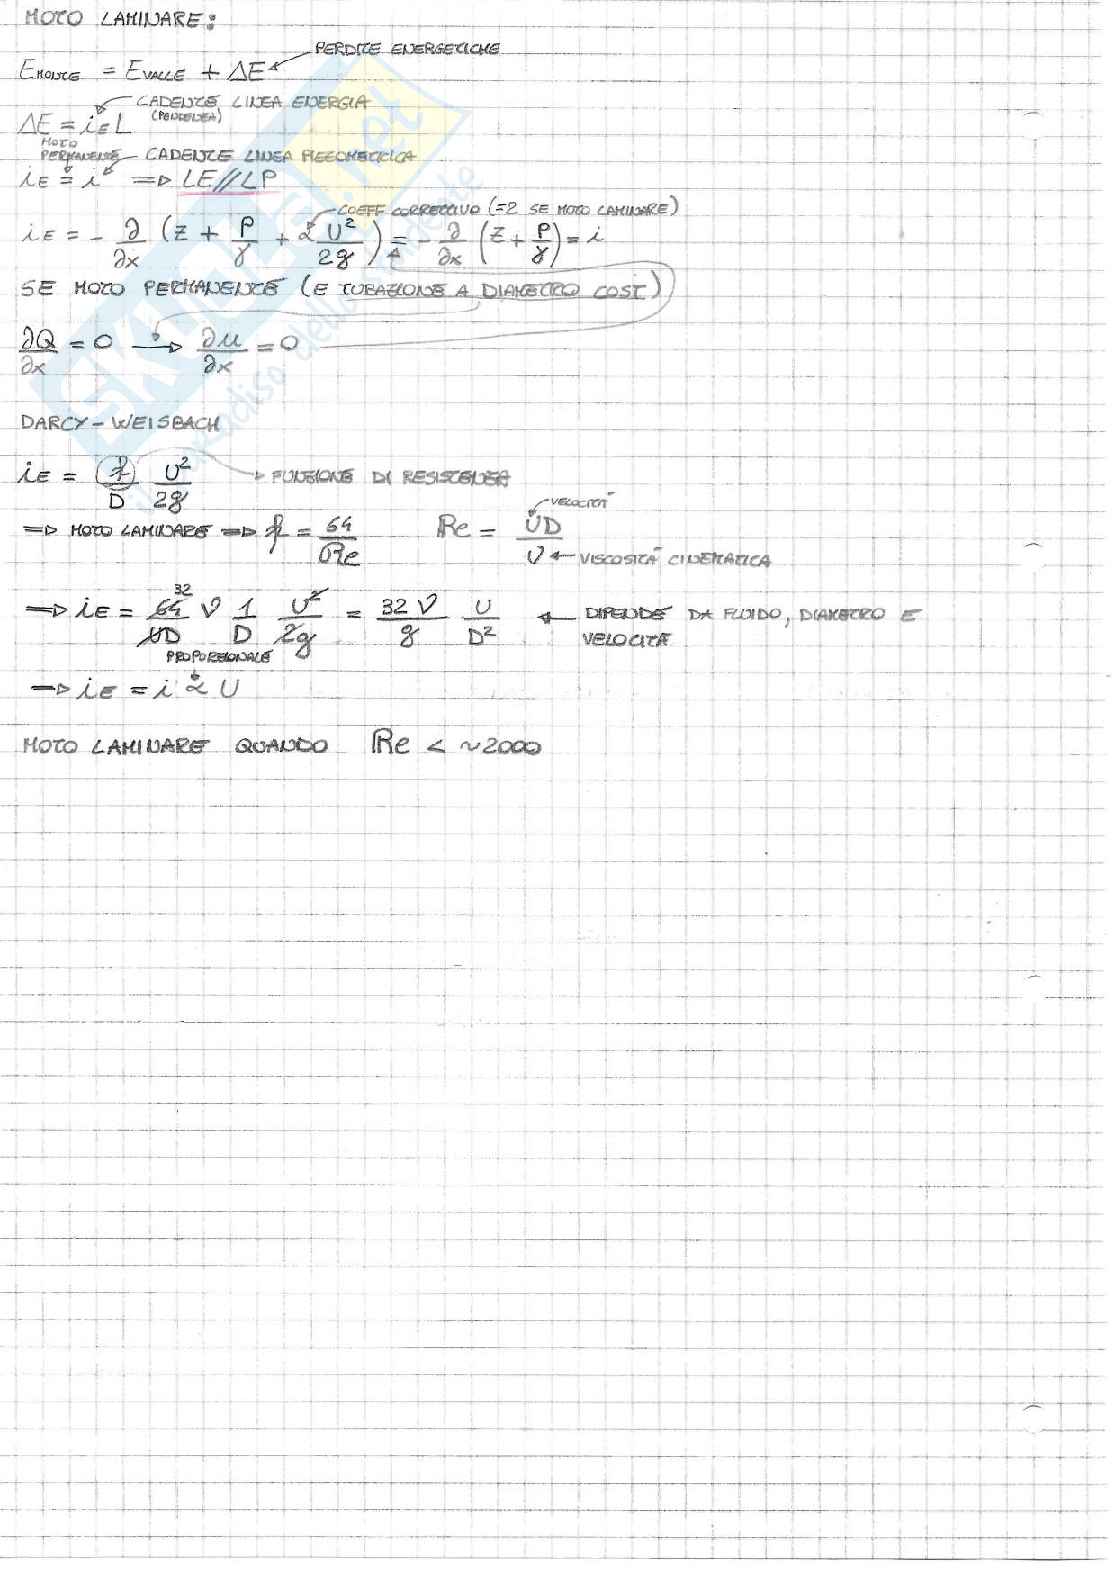 MOTO LAMINARE:
PERDITE ENERGETICHE
E_MONTE = E_VALLE + ΔE
CADENTE LINEA ENERGIA
(PENDENZA)
ΔE = i_E L
MOTO
PERMANENTE CADENTE LINEA PIEZOMETRICA
i_E = i ⇒ LE // LP
COEFF CORRETTIVO (=2 SE MOTO LAMINARE)
i_E = - ∂/∂x (z + P/γ + α U²/2g) = - ∂/∂x (z + P/γ) = i
SE MOTO PERMANENTE (E TUBAZIONE A DIAMETRO COST)
∂Q/∂x = 0 → ∂u/∂x = 0
DARCY-WEISBACH
i_E = f/D U²/2g → FUNZIONE DI RESISTENZA
VELOCITÀ
⇒ MOTO LAMINARE ⇒ f = 64/Re Re = UD/ν ← VISCOSITÀ CINEMATICA
32
⇒ i_E = 64/UD ν 1/D U²/2g = 32ν/g U/D² ← DIPENDE DA FLUIDO, DIAMETRO E
VELOCITÀ
PROPORZIONALE
⇒ i_E = i α U
MOTO LAMINARE QUANDO Re < ~2000
SKUOLA.net
il paradiso dello studente